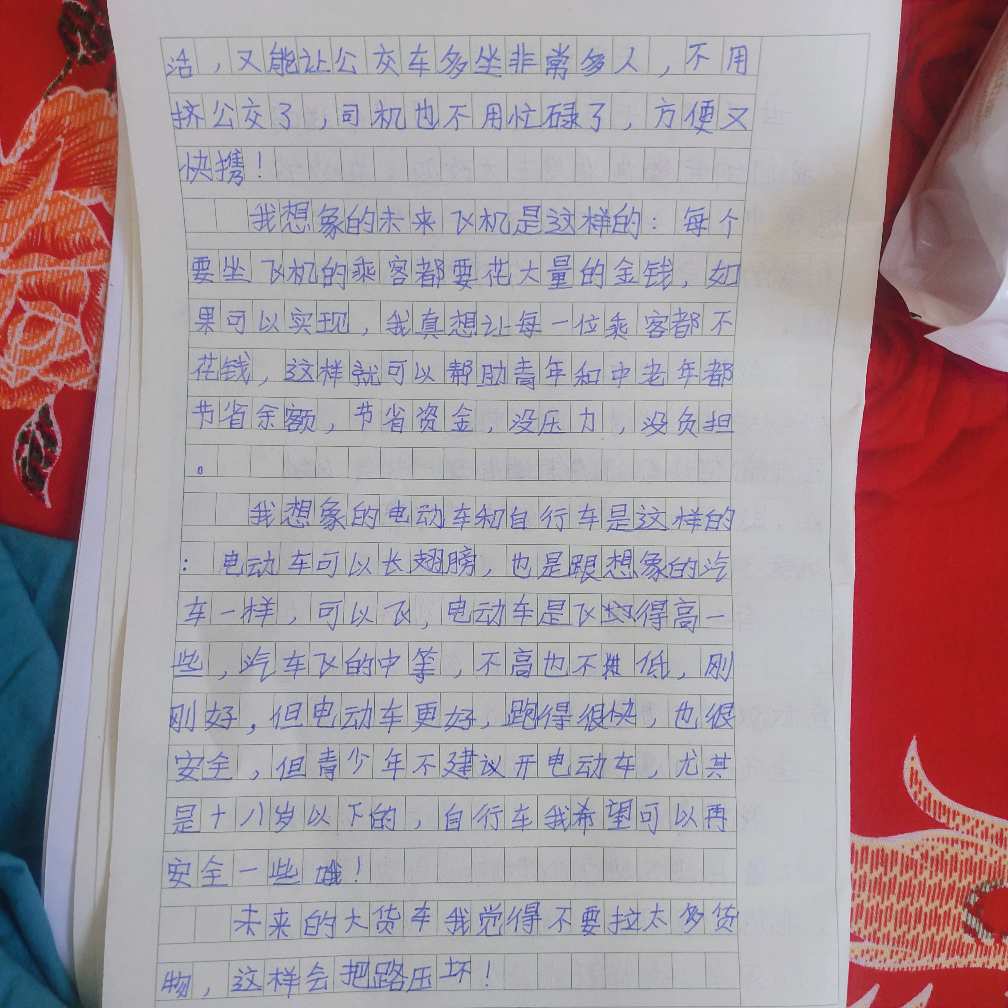 活，又能让公交车多坐非常多人，不用
挤公交了，司机也不用忙碌了，方便又
快携！
我想象的未来飞机是这样的：每个
要坐飞机的乘客都要花大量的金钱，如
果可以实现，我真想让每一位乘客都不
花钱，这样就可以帮助青年和中老年都
节省余额，节省资金，没压力，没负担
。
我想象的电动车和自行车是这样的
：电动车可以长翅膀，也是跟想象的汽
车一样，可以飞，电动车是飞得高一
些，汽车飞的中等，不高也不低，刚
刚好，但电动车更好，跑得很快，也很
安全，但青少年不建议开电动车，尤其
是十八岁以下的，自行车我希望可以再
安全一些！
未来的大货车我觉得不要拉太多货
物，这样会把路压坏！